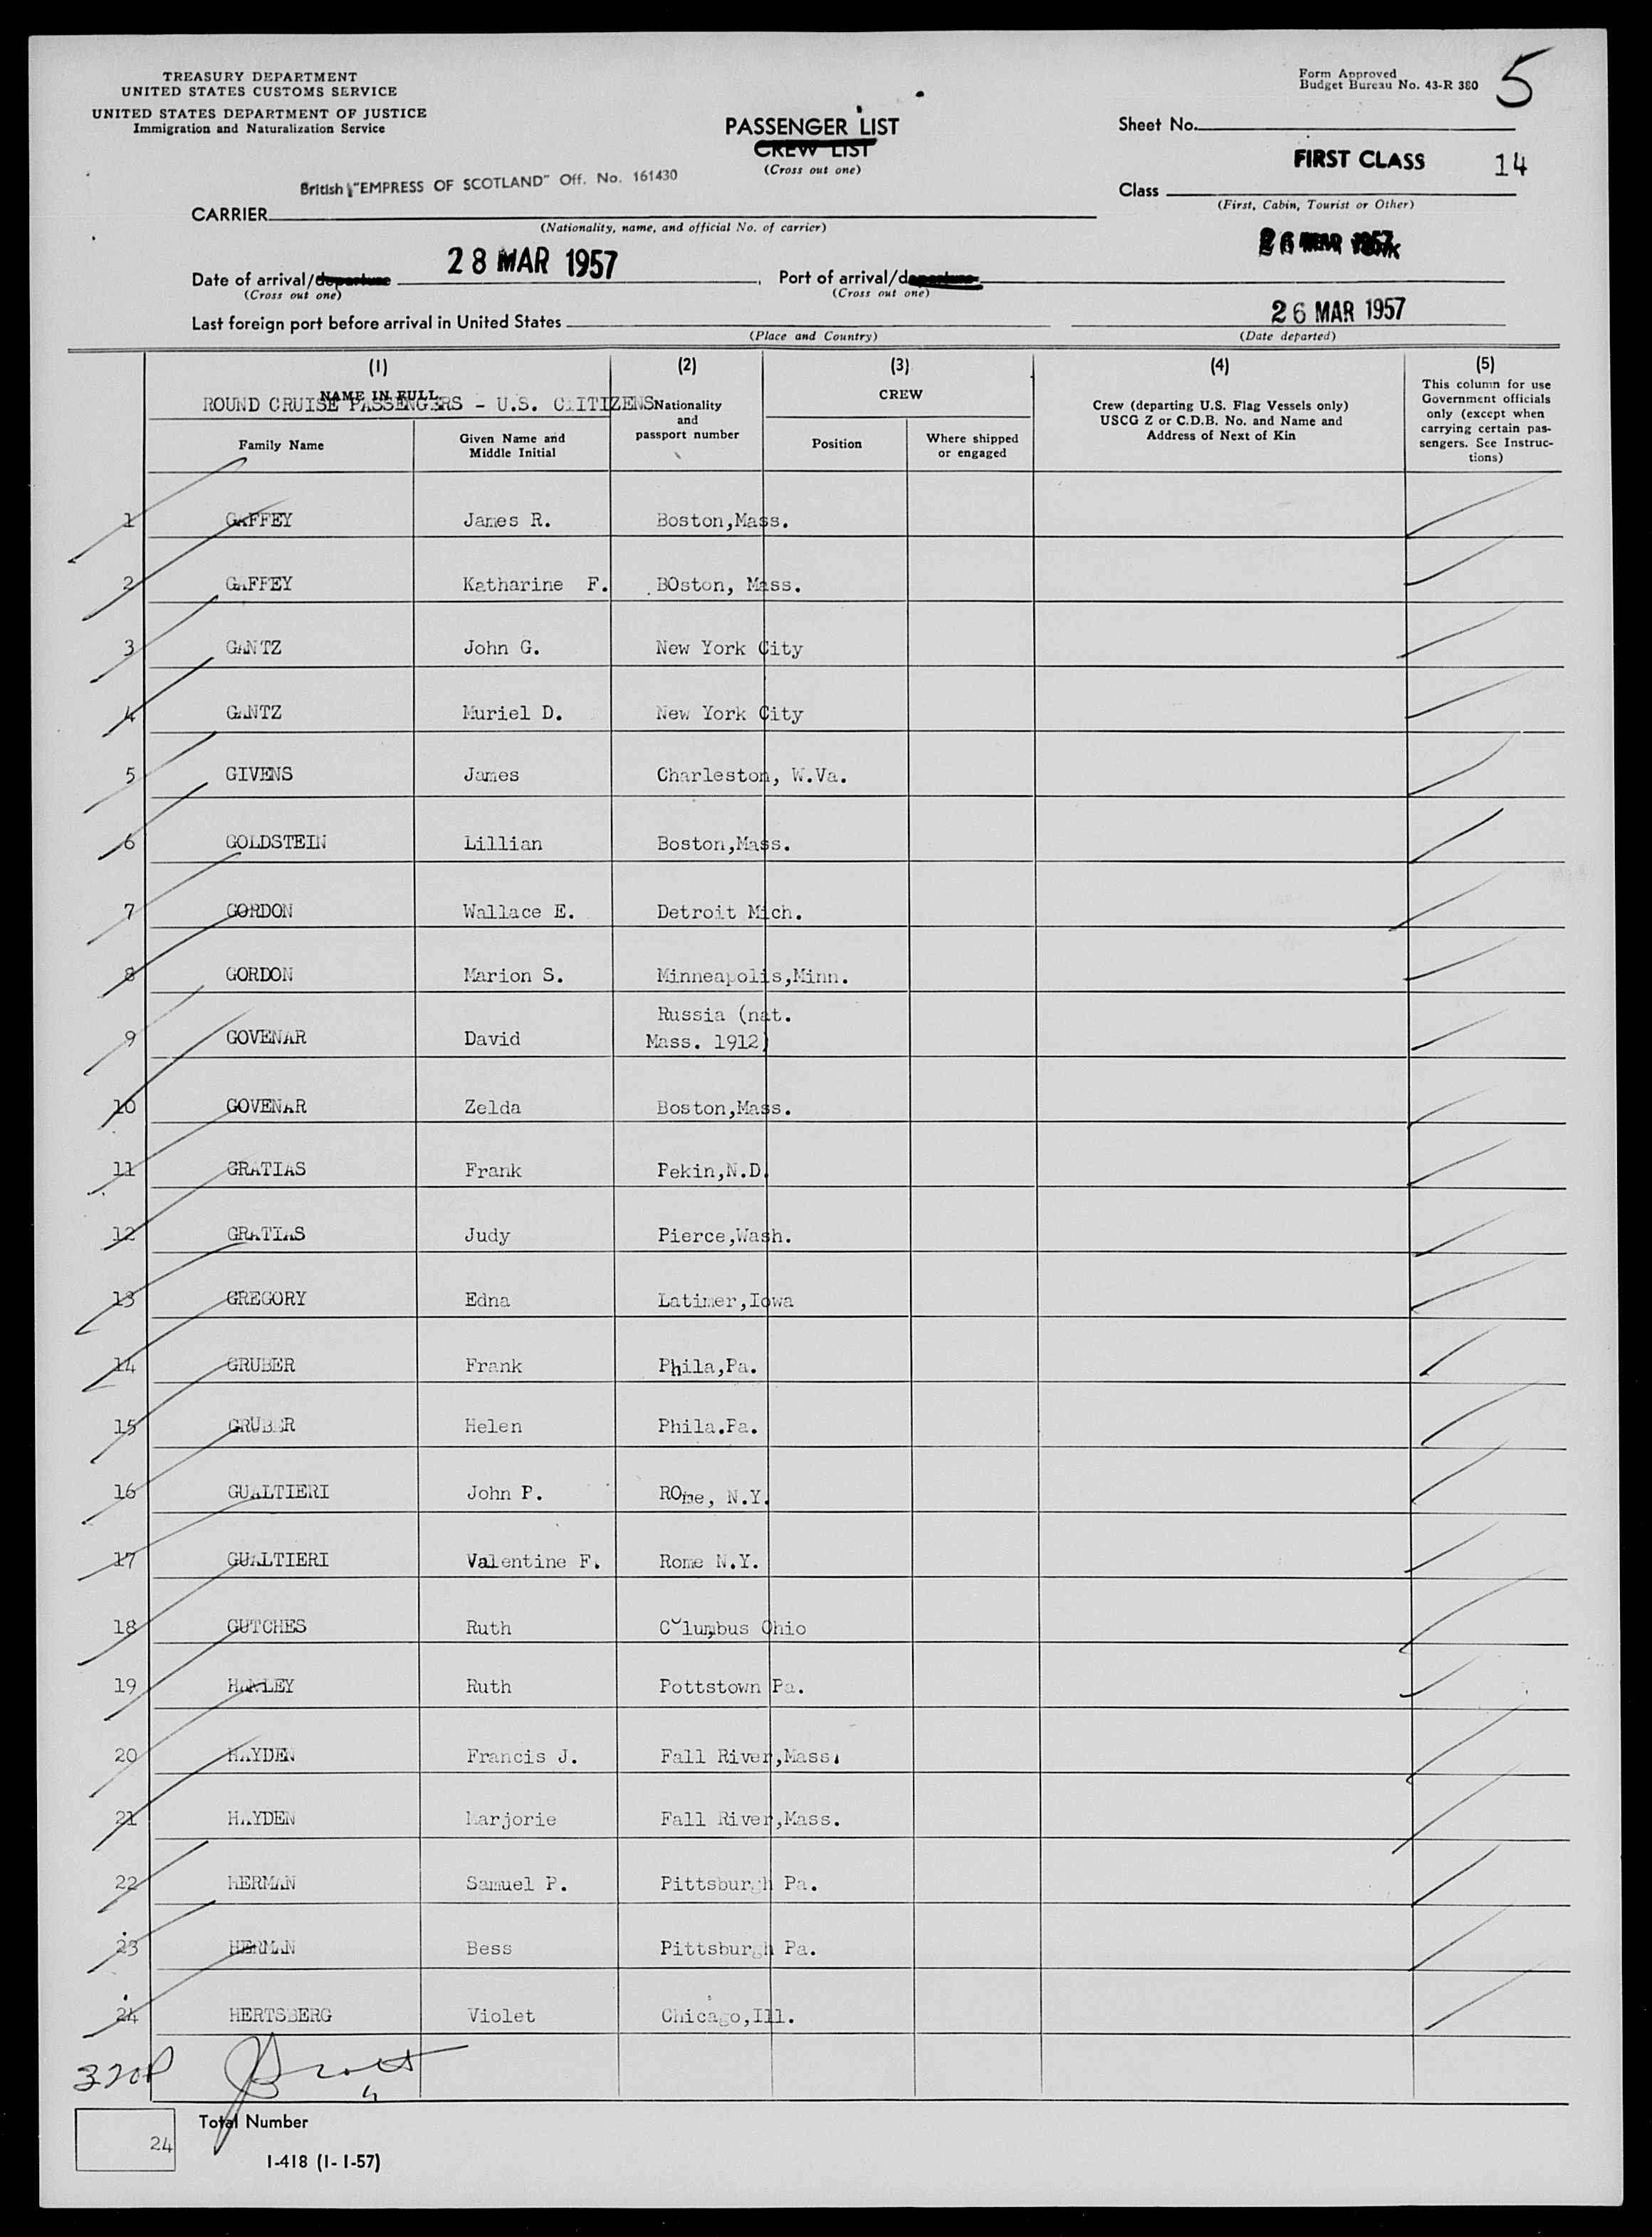 TREASURY DEPARTMENT
UNITED STATES CUSTOMS SERVICE
UNITED STATES DEPARTMENT OF JUSTICE
Immigration and Naturalization Service
Form Approved
Budget Bureau No. 43-R 380
5
PASSENGER LIST
CREW LIST
(Cross out one)
Sheet No.
FIRST CLASS 14
Class
(First, Cabin, Tourist or Other)
British "EMPRESS OF SCOTLAND" Off. No. 161430
CARRIER
(Nationality, name, and official No. of carrier)
Date of arrival/departure 28 MAR 1957, Port of arrival/departure
(Cross out one) (Cross out one)
26 MAR 1957
Last foreign port before arrival in United States
(Place and Country) (Date departed)
(1) (2) (3) (4) (5)
NAME IN FULL
ROUND CRUISE PASSENGERS - U.S. CIITIZENS
Family Name
Given Name and
Middle Initial
Nationality
and
passport number
CREW
Position
Where shipped
or engaged
Crew (departing U.S. Flag Vessels only)
USCG Z or C.D.B. No. and Name and
Address of Next of Kin
This column for use
Government officials
only (except when
carrying certain pas-
sengers. See Instruc-
tions)
1 GAFFEY James R. Boston,Mass.
2 GAFFEY Katharine F. BOston, Mass.
3 GANTZ John G. New York City
4 GANTZ Muriel D. New York City
5 GIVENS James Charleston, W.Va.
6 GOLDSTEIN Lillian Boston,Mass.
7 GORDON Wallace E. Detroit Mich.
8 GORDON Marion S. Minneapolis,Minn.
Russia (nat.
9 GOVENAR David Mass. 1912)
10 GOVENAR Zelda Boston,Mass.
11 GRATIAS Frank Pekin,N.D.
12 GRATIAS Judy Pierce,Wash.
13 GREGORY Edna Latimer,Iowa
14 GRUBER Frank Phila,Pa.
15 GRUBER Helen Phila.Pa.
16 GUALTIERI John P. ROme, N.Y.
17 GUALTIERI Valentine F. Rome N.Y.
18 GUTCHES Ruth Columbus Ohio
19 HANLEY Ruth Pottstown Pa.
20 HAYDEN Francis J. Fall River,Mass.
21 HAYDEN Marjorie Fall River,Mass.
22 HERMAN Samuel P. Pittsburgh Pa.
23 HERMAN Bess Pittsburgh Pa.
24 HERTSBERG Violet Chicago,Ill.
24
Total Number
I-418 (1-1-57)